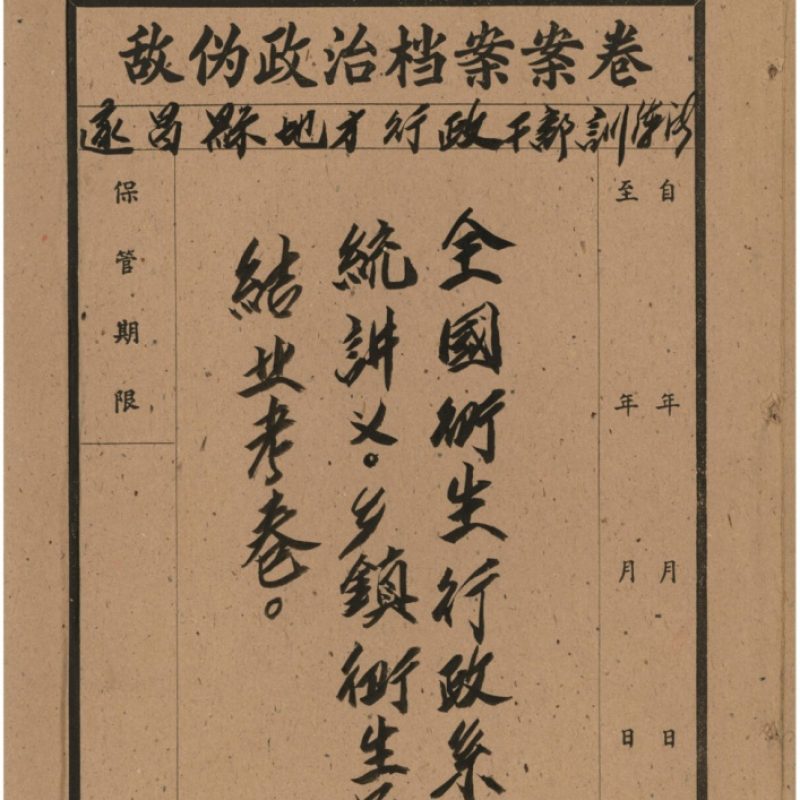 敌伪政治档案案卷
遂昌縣地方行政干部訓練所
自 年 月 日
至 年 月 日
全國衛生行政系
統講义。乡鎮衛生
結业考卷。
保管期限